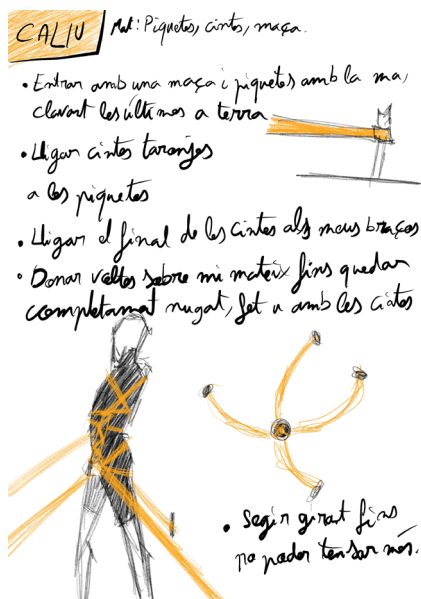 CALIU
Mat: Piquetes, cintes, maça.
• Entrar amb una maça i piquetes amb la ma,
clavant les últimes a terra
• Lligar cintes taronjes
a les piquetes
• Lligar el final de les cintes als meus braços
• Donar voltes sobre mi mateix fins quedar
completamat nugat, fet u amb les cintes
• Segir girant fins
no poder tensar més.